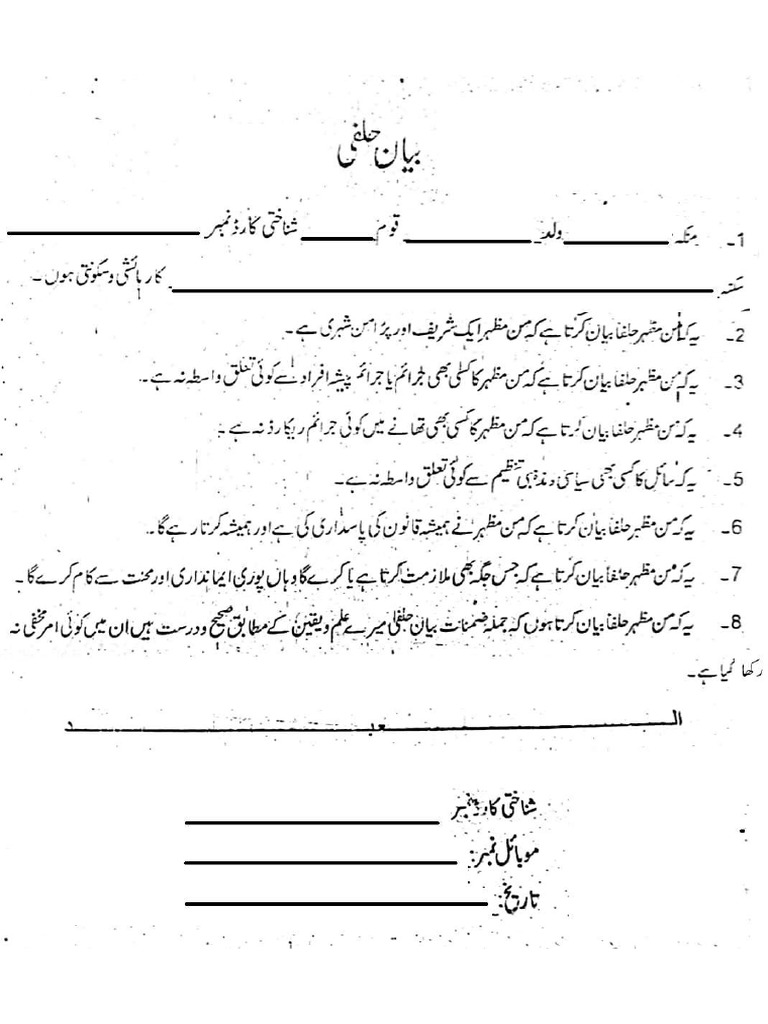 بیان حلفی
1۔ منکہ __________ ولد __________ قوم __________ شناختی کارڈ نمبر __________
سکنہ __________ کا رہائشی و سکونتی ہوں۔
2۔ یہ کہ من مظہر حلفاً بیان کرتا ہے کہ من مظہر ایک شریف اور پرُ امن شہری ہے۔
3۔ یہ کہ من مظہر حلفاً بیان کرتا ہے کہ من مظہر کا کسی بھی جرائم یا جرائم پیشہ افراد سے کوئی تعلق واسطہ نہ ہے۔
4۔ یہ کہ من مظہر حلفاً بیان کرتا ہے کہ من مظہر کا کسی بھی تھانے میں کوئی جرائم ریکارڈ نہ ہے۔
5۔ یہ کہ سائل کا کسی بھی سیاسی و مذہبی تنظیم سے کوئی تعلق واسطہ نہ ہے۔
6۔ یہ کہ من مظہر حلفاً بیان کرتا ہے کہ من مظہر نے ہمیشہ قانون کی پاسداری کی ہے اور ہمیشہ کرتا رہے گا۔
7۔ یہ کہ من مظہر حلفاً بیان کرتا ہے کہ جس جگہ بھی ملازمت کرتا ہے یا کرے گا وہاں پوری ایمانداری اور محنت سے کام کرے گا۔
8۔ یہ کہ من مظہر حلفاً بیان کرتا ہوں کہ جملہ ضمنات بیان حلفی میرے علم و یقین کے مطابق صحیح و درست ہیں ان میں کوئی امر مخفی نہ
رکھا گیا ہے۔
العبد
شناختی کارڈ نمبر __________
موبائل نمبر: __________
تاریخ: __________